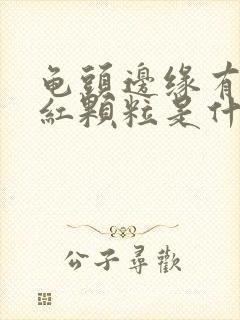 龟頭邊缘有
紅顆粒是什
公子尋歡